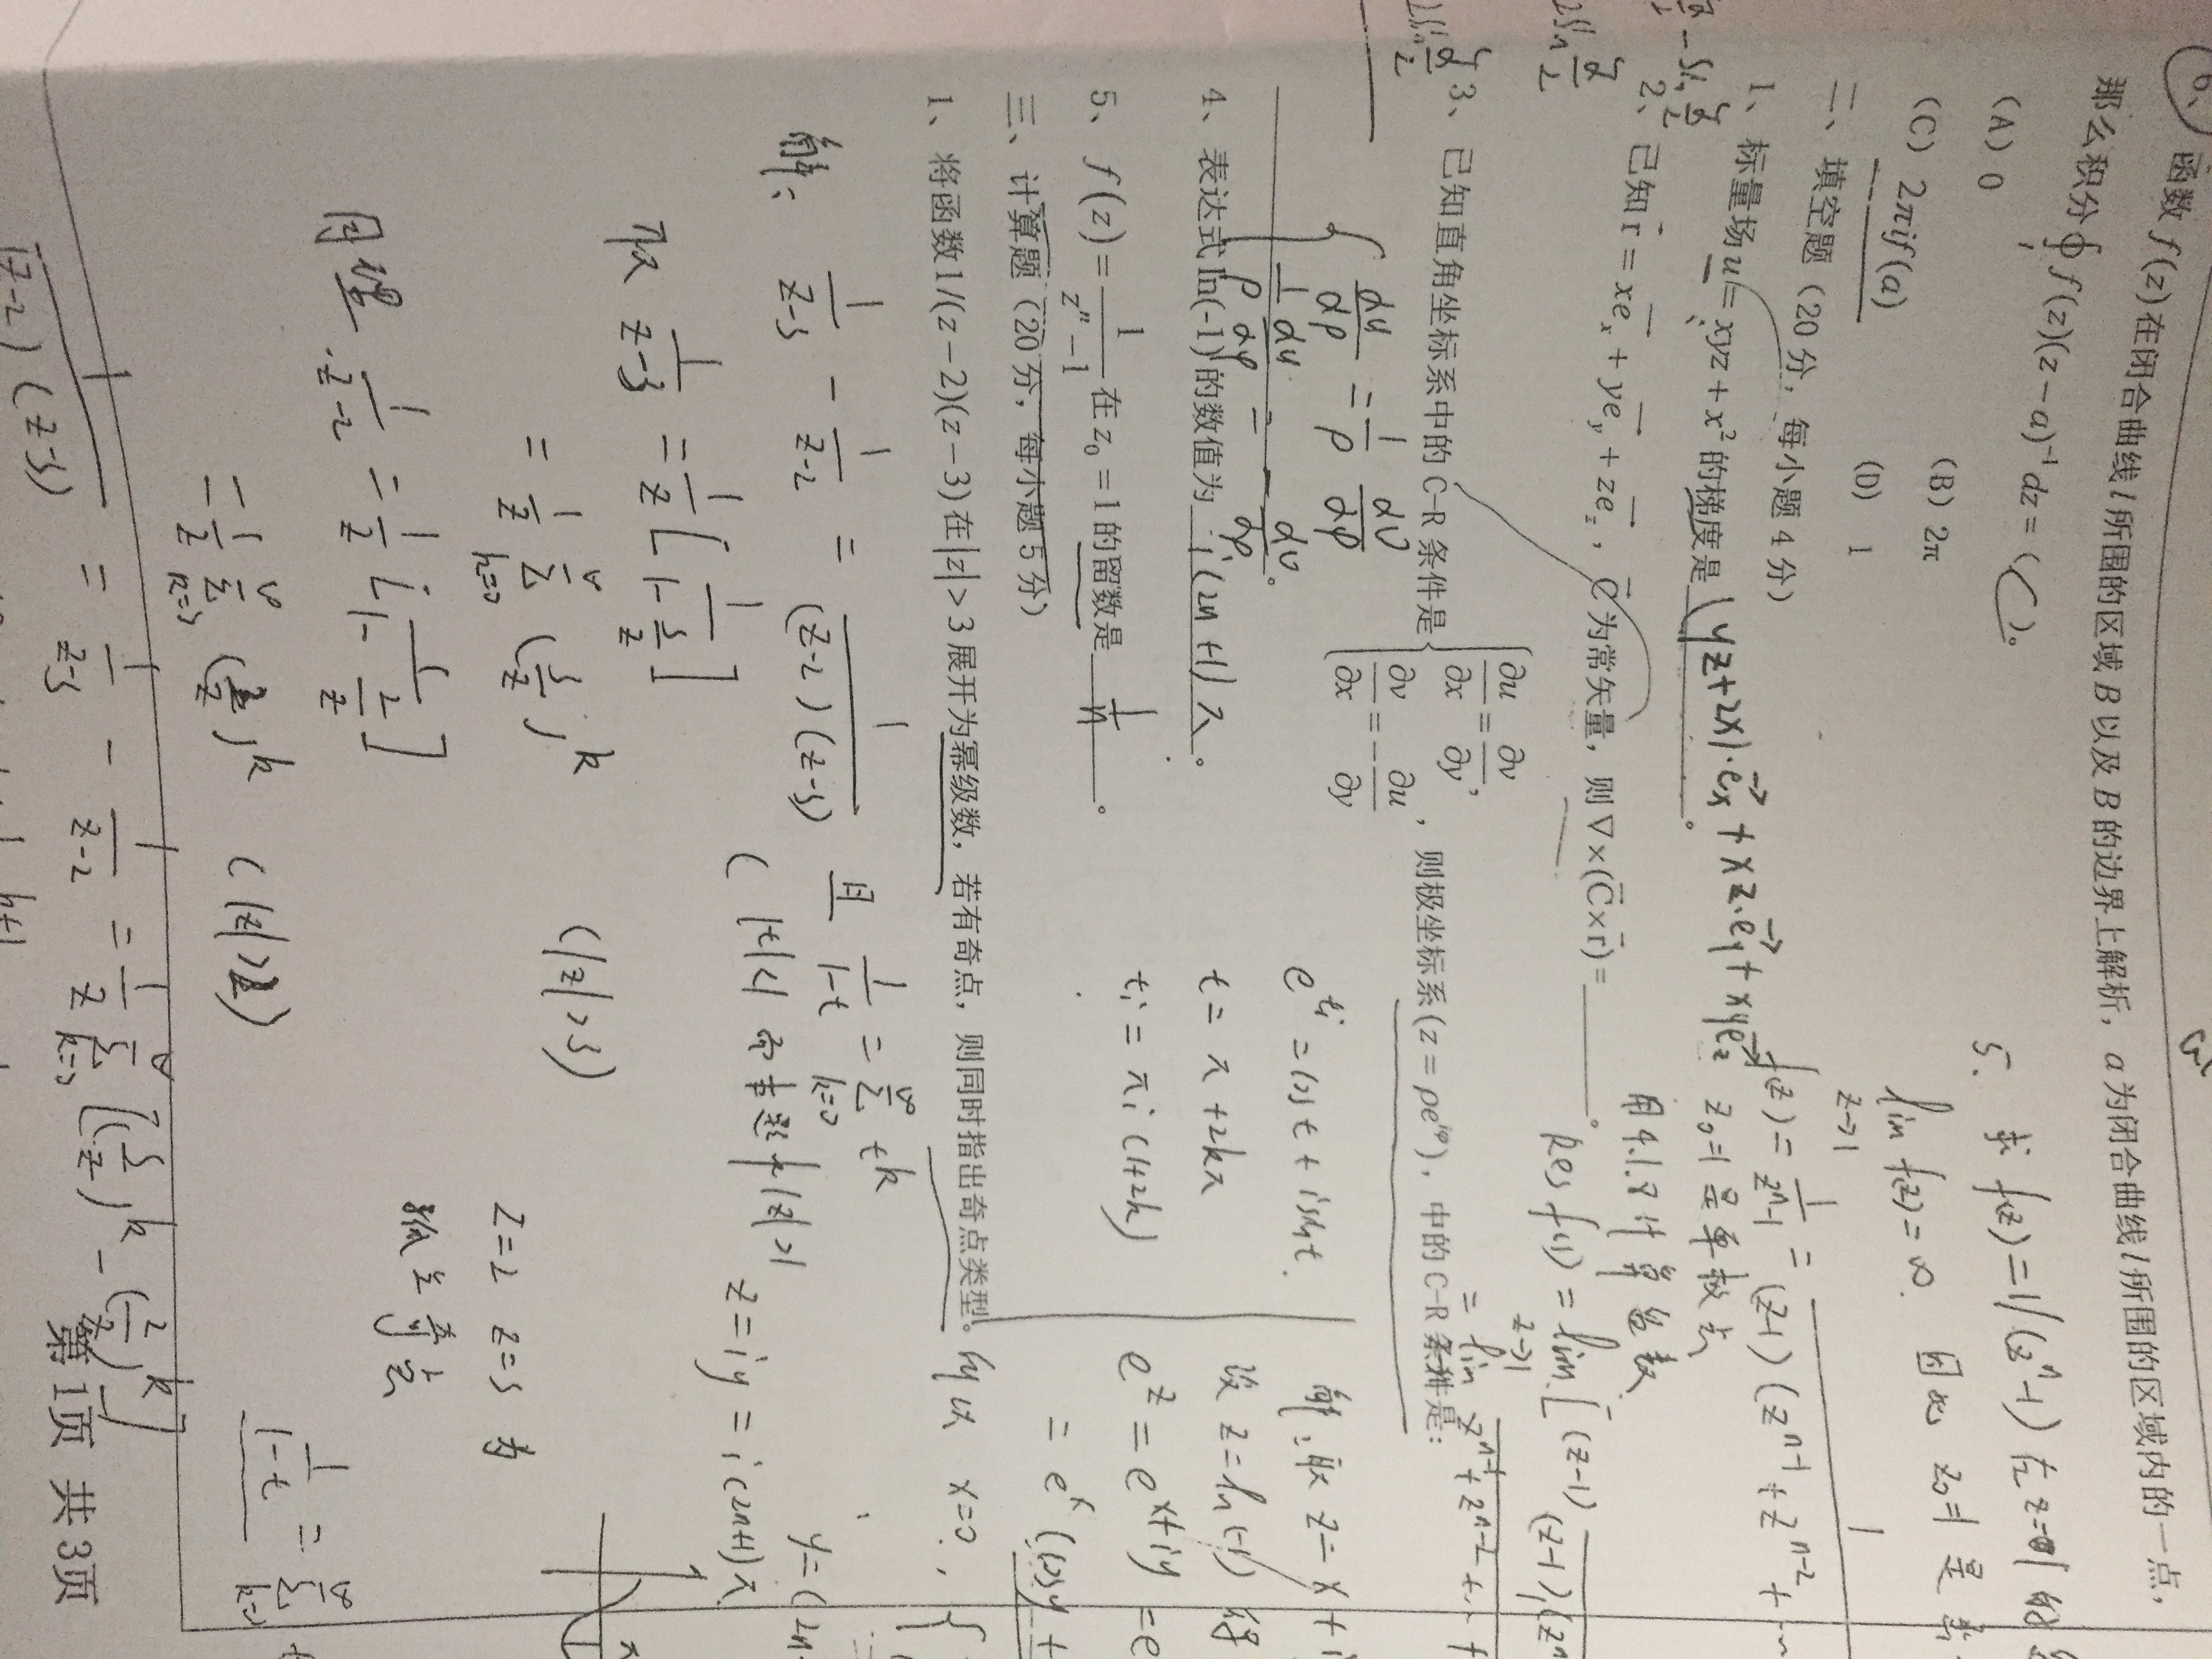 6、函数 f(z)在闭合曲线 l 所围的区域 B 以及 B 的边界上解析，a 为闭合曲线 l 所围的区域内的一点，
那么积分 ∮_l f(z)(z−a)^{-1}dz = (C)。
(A) 0 (B) 2π
(C) 2πif(a) (D) 1
二、填空题（20 分，每小题 4 分）
1、标量场 u = xyz + x² 的梯度是 (yz+2x)·ex + xz·ey + xyez。
2、已知 r = xe_x + ye_y + ze_z，C 为常矢量，则 ∇×(C×r) = ______。
3、已知直角坐标系中的 C-R 条件是 { ∂u/∂x = ∂v/∂y, ∂v/∂x = −∂u/∂y ，则极坐标系(z = ρe^{iφ})，中的 C-R 条件是：
{ ∂u/∂ρ = 1/ρ ∂v/∂φ
1/ρ ∂u/∂φ = − ∂v/∂ρ 。
4、表达式 ln(-1) 的数值为 i(2n+1)π 。
5、f(z) = 1/(z^n − 1) 在 z_0 = 1 的留数是 1/n 。
三、计算题（20 分，每小题 5 分）
1、将函数 1/(z−2)(z−3) 在 |z| > 3 展开为幂级数，若有奇点，则同时指出奇点类型。
解： 1/(z-3) − 1/(z-2) = 1/((z-2)(z-3)) 且 1/(1-t) = ∑_{k=0}^∞ t^k
( |t|<1
取 1/(z-3) = 1/z [1/(1-3/z)]
= 1/z ∑_{k=0}^∞ (3/z)^k (|z|>3)
同理 1/(z-2) = 1/z [1/(1-2/z)]
= 1/z ∑_{k=0}^∞ (2/z)^k (|z|>2)
1/((z-2)(z-3)) = 1/(z-3) − 1/(z-2) = 1/z ∑_{k=0}^∞ [(3/z)^k − (2/z)^k]
z=2 z=3 为
孤立奇点
1/(1-t) = ∑_{k=0}^∞
e^{ti} = cost + isint.
t = π + 2kπ
ti = πi(1+2k)
5. 求 f(z) = 1/(z^n-1) 在 z=1
lim_{z→1} f(z) = ∞. 因此 z0=1 是
f(z) = 1/(z^n-1) = 1/((z-1)(z^{n-1}+z^{n-2}+…
z0=1 是单极点
用 4.1.8 计算留数
Res f(1) = lim_{z→1} [(z-1)
= lim_{z→1} 1/(z^{n-1}+z^{n-2}+…+
解：取 z = x+i
设 z = ln(-1) 得
e^z = e^{x+iy} = e
= e^x(cosy +
所以 x=0, {
y=(2n
z = iy = i(2n+1)π
第 1页 共 3页